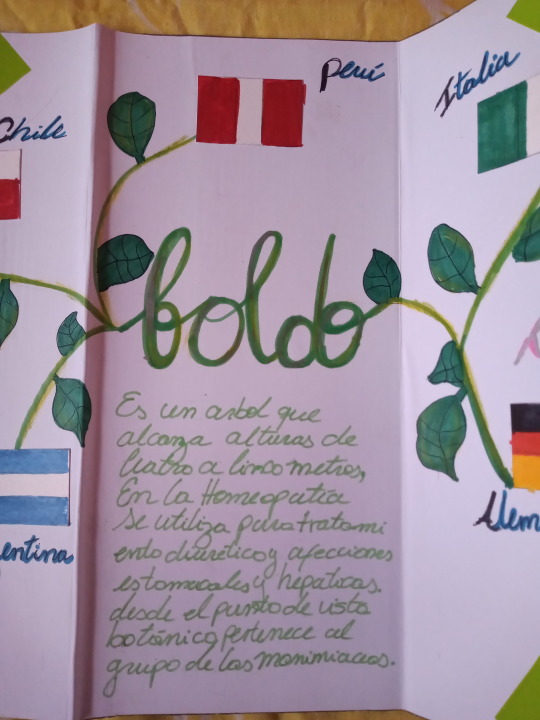 Chile
Perú
Italia
boldo
Es un arbol que
alcanza alturas de
Cuatro a Cinco metros,
En La Homeopatica
se utiliza para tratami
ento diuretico y afecciones
estomacales y hepaticas.
desde el punto de vista
botánico pertenece al
grupo de las monimiaceas.
entina
Alem